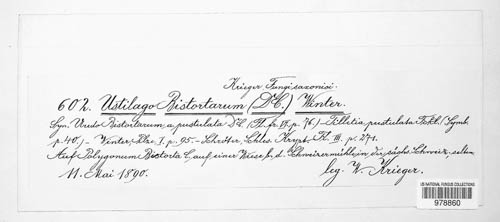 Krieger Fungi saxonici.
602. Ustilago Bistortarum (DC.) Winter.
Syn. Uredo Bistortarum, a pustulata DC. (Fl. fr. VI, p. 76.) – Tilletia pustulata Fckl. (Symb.
p. 40,) – Winter, Pilze I, p. 95 – Schröter, Schles. Krypt. Fl. III, p. 271.
Auf Polygonum Bistorta L. auf einer Wiese b. d. Schweizermühle in der sächs. Schweiz, selten.
11. Mai 1890. leg. W. Krieger.
US NATIONAL FUNGUS COLLECTIONS
978860